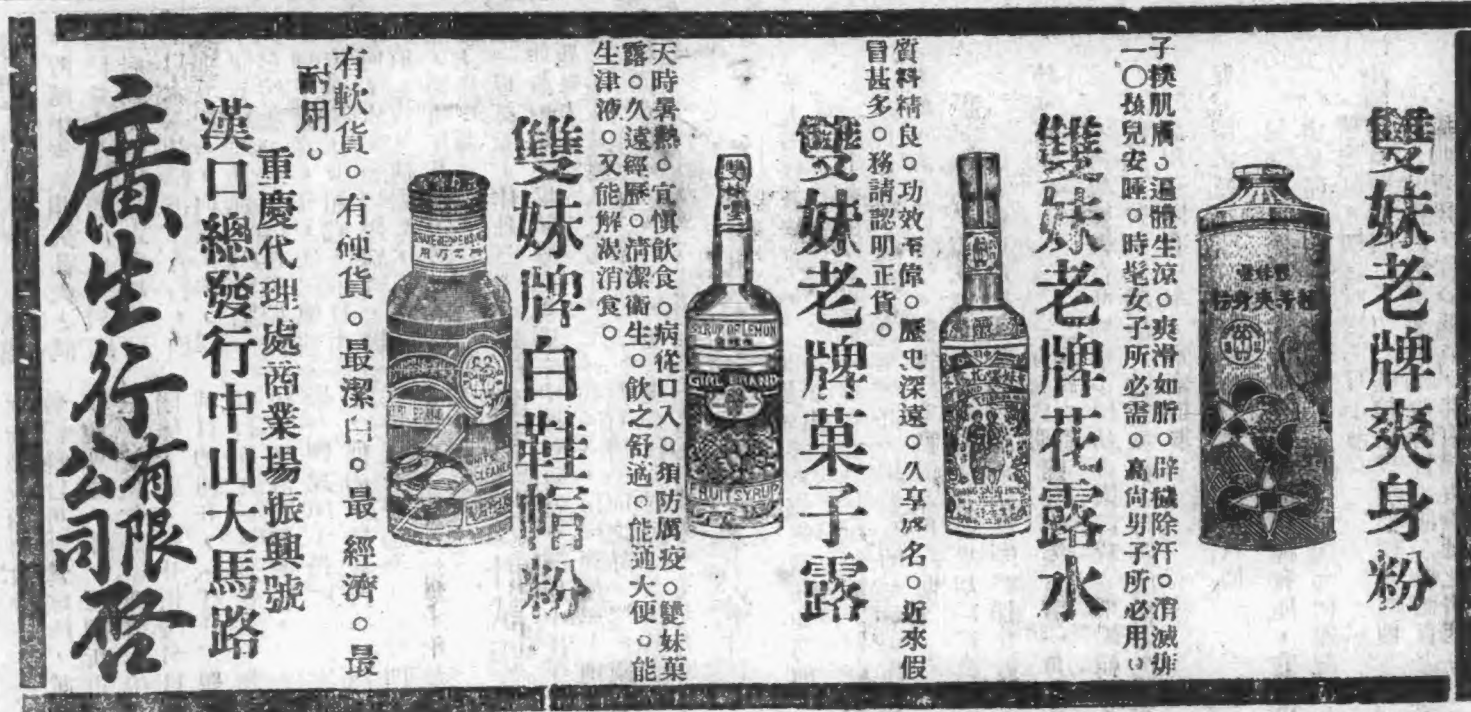 雙妹老牌爽身粉
雙妹嚜
行身爽等超
子撲肌膚。遍體生涼。爽滑如脂。辟穢除汗。消滅痱
一〇孩兒安睡。時髦女子所必需。高尚男子所必用。
雙妹老牌花露水
質料精良。功效至偉。歷史深遠。久享盛名。近來假
冒甚多。務請認明正貨。
雙妹老牌菓子露
雙妹嚜
SYRUP OF LEMON
GIRL BRAND
FRUIT SYRUP
天時暑熱。宜慎飲食。病從口入。須防厲疫。雙妹菓
露。久遠經歷。清潔衛生。飲之舒適。能通大便。能
生津液。又能解渴消食。
雙妹牌白鞋帽粉
WHITE
CLEANER
有軟貨。有硬貨。最潔白。最經濟。最
耐用。
重慶代理處商業場振興號
漢口總發行中山大馬路
廣生行有限公司啓